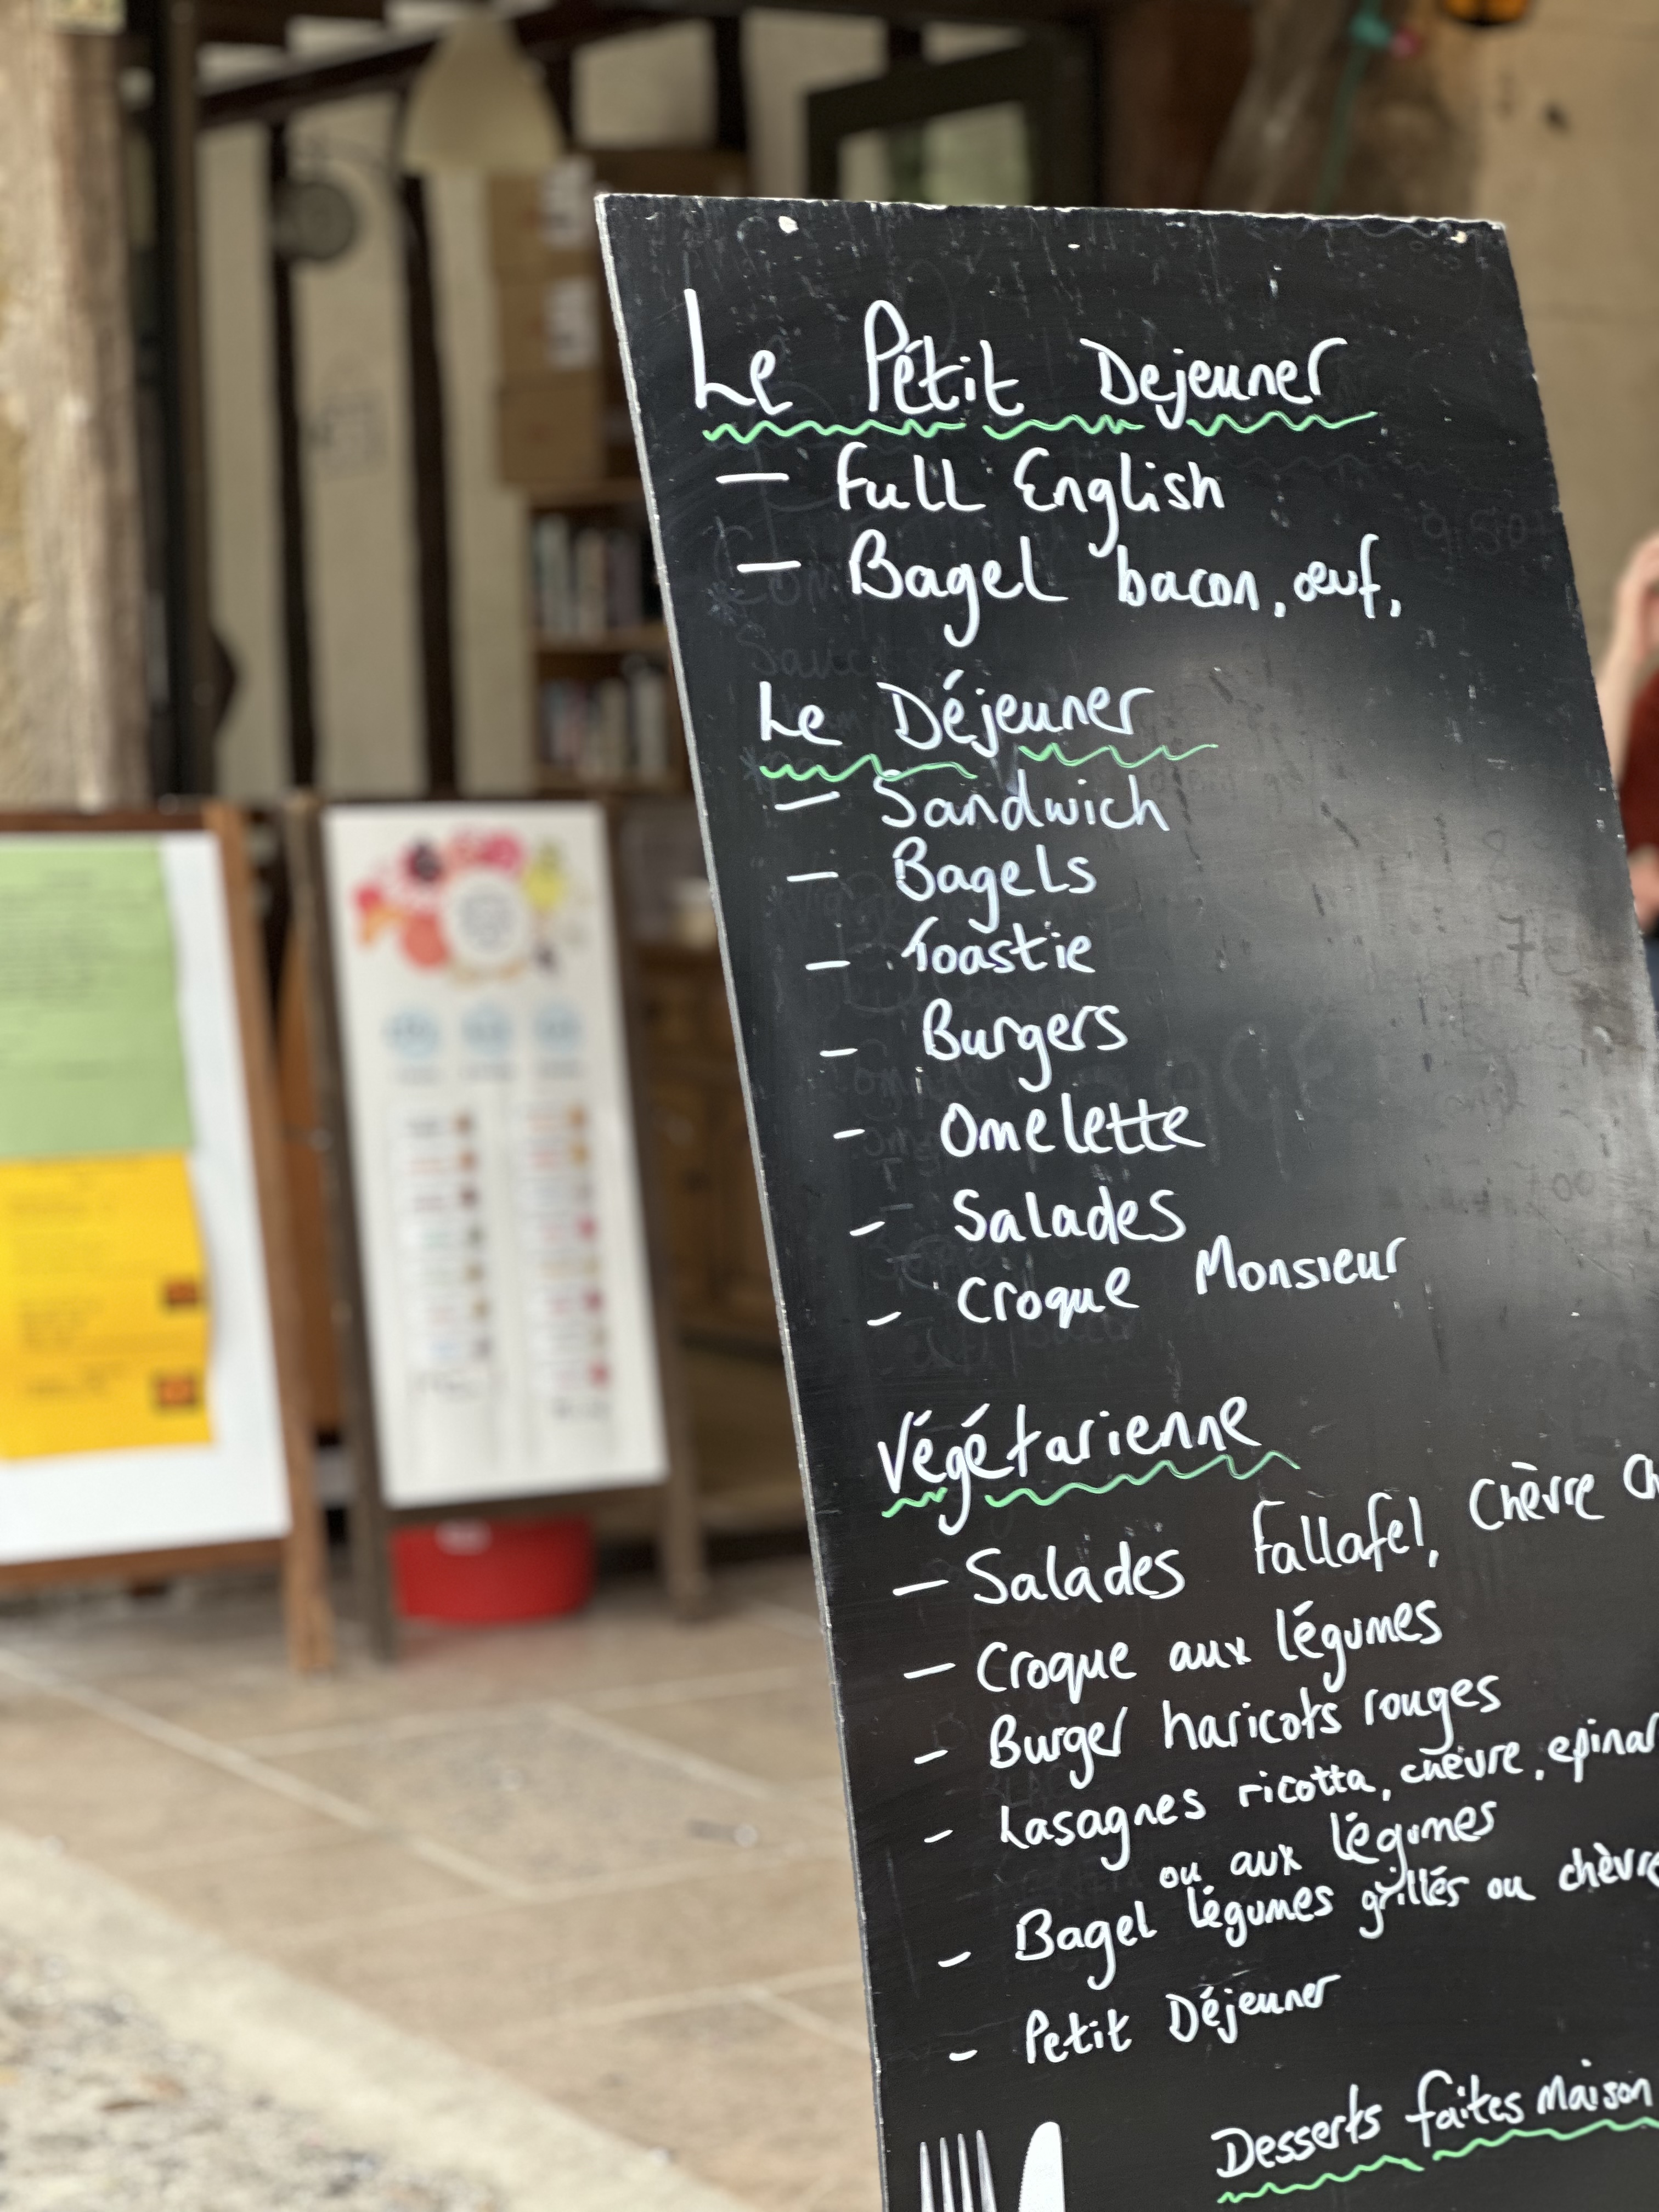 Le Pétit Dejeuner
— Full English
— Bagel bacon, œuf,
Le Déjeuner
— Sandwich
— Bagels
— Toastie
— Burgers
— Omelette
— Salades
— Croque Monsieur
Végétarienne
— Salades Fallafel, Chèvre
— Croque aux légumes
— Burger haricots rouges
— Lasagnes ricotta, chèvre, epinar
ou aux légumes
— Bagel légumes grillés ou chèvre
— Petit Déjeuner
Desserts faites Maison